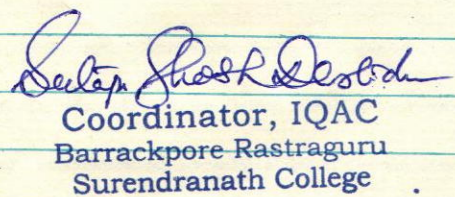 Ghosh Dastidar
Coordinator, IQAC
Barrackpore Rastraguru
Surendranath College